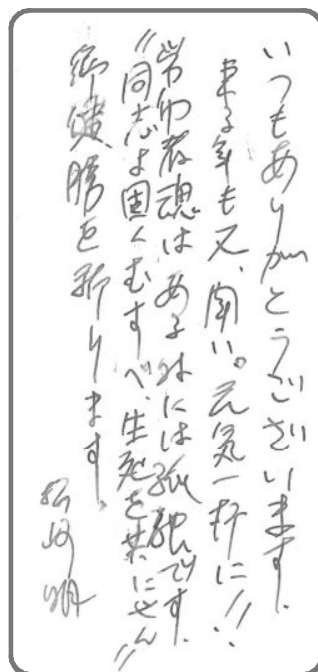 いつもありがとうございます。
来る年も又、闘い。元気一杯に!!
労働者魂は ある外には孤独です。
"同志よ固くむすべ、生死を共にせん"
御健勝を祈ります。